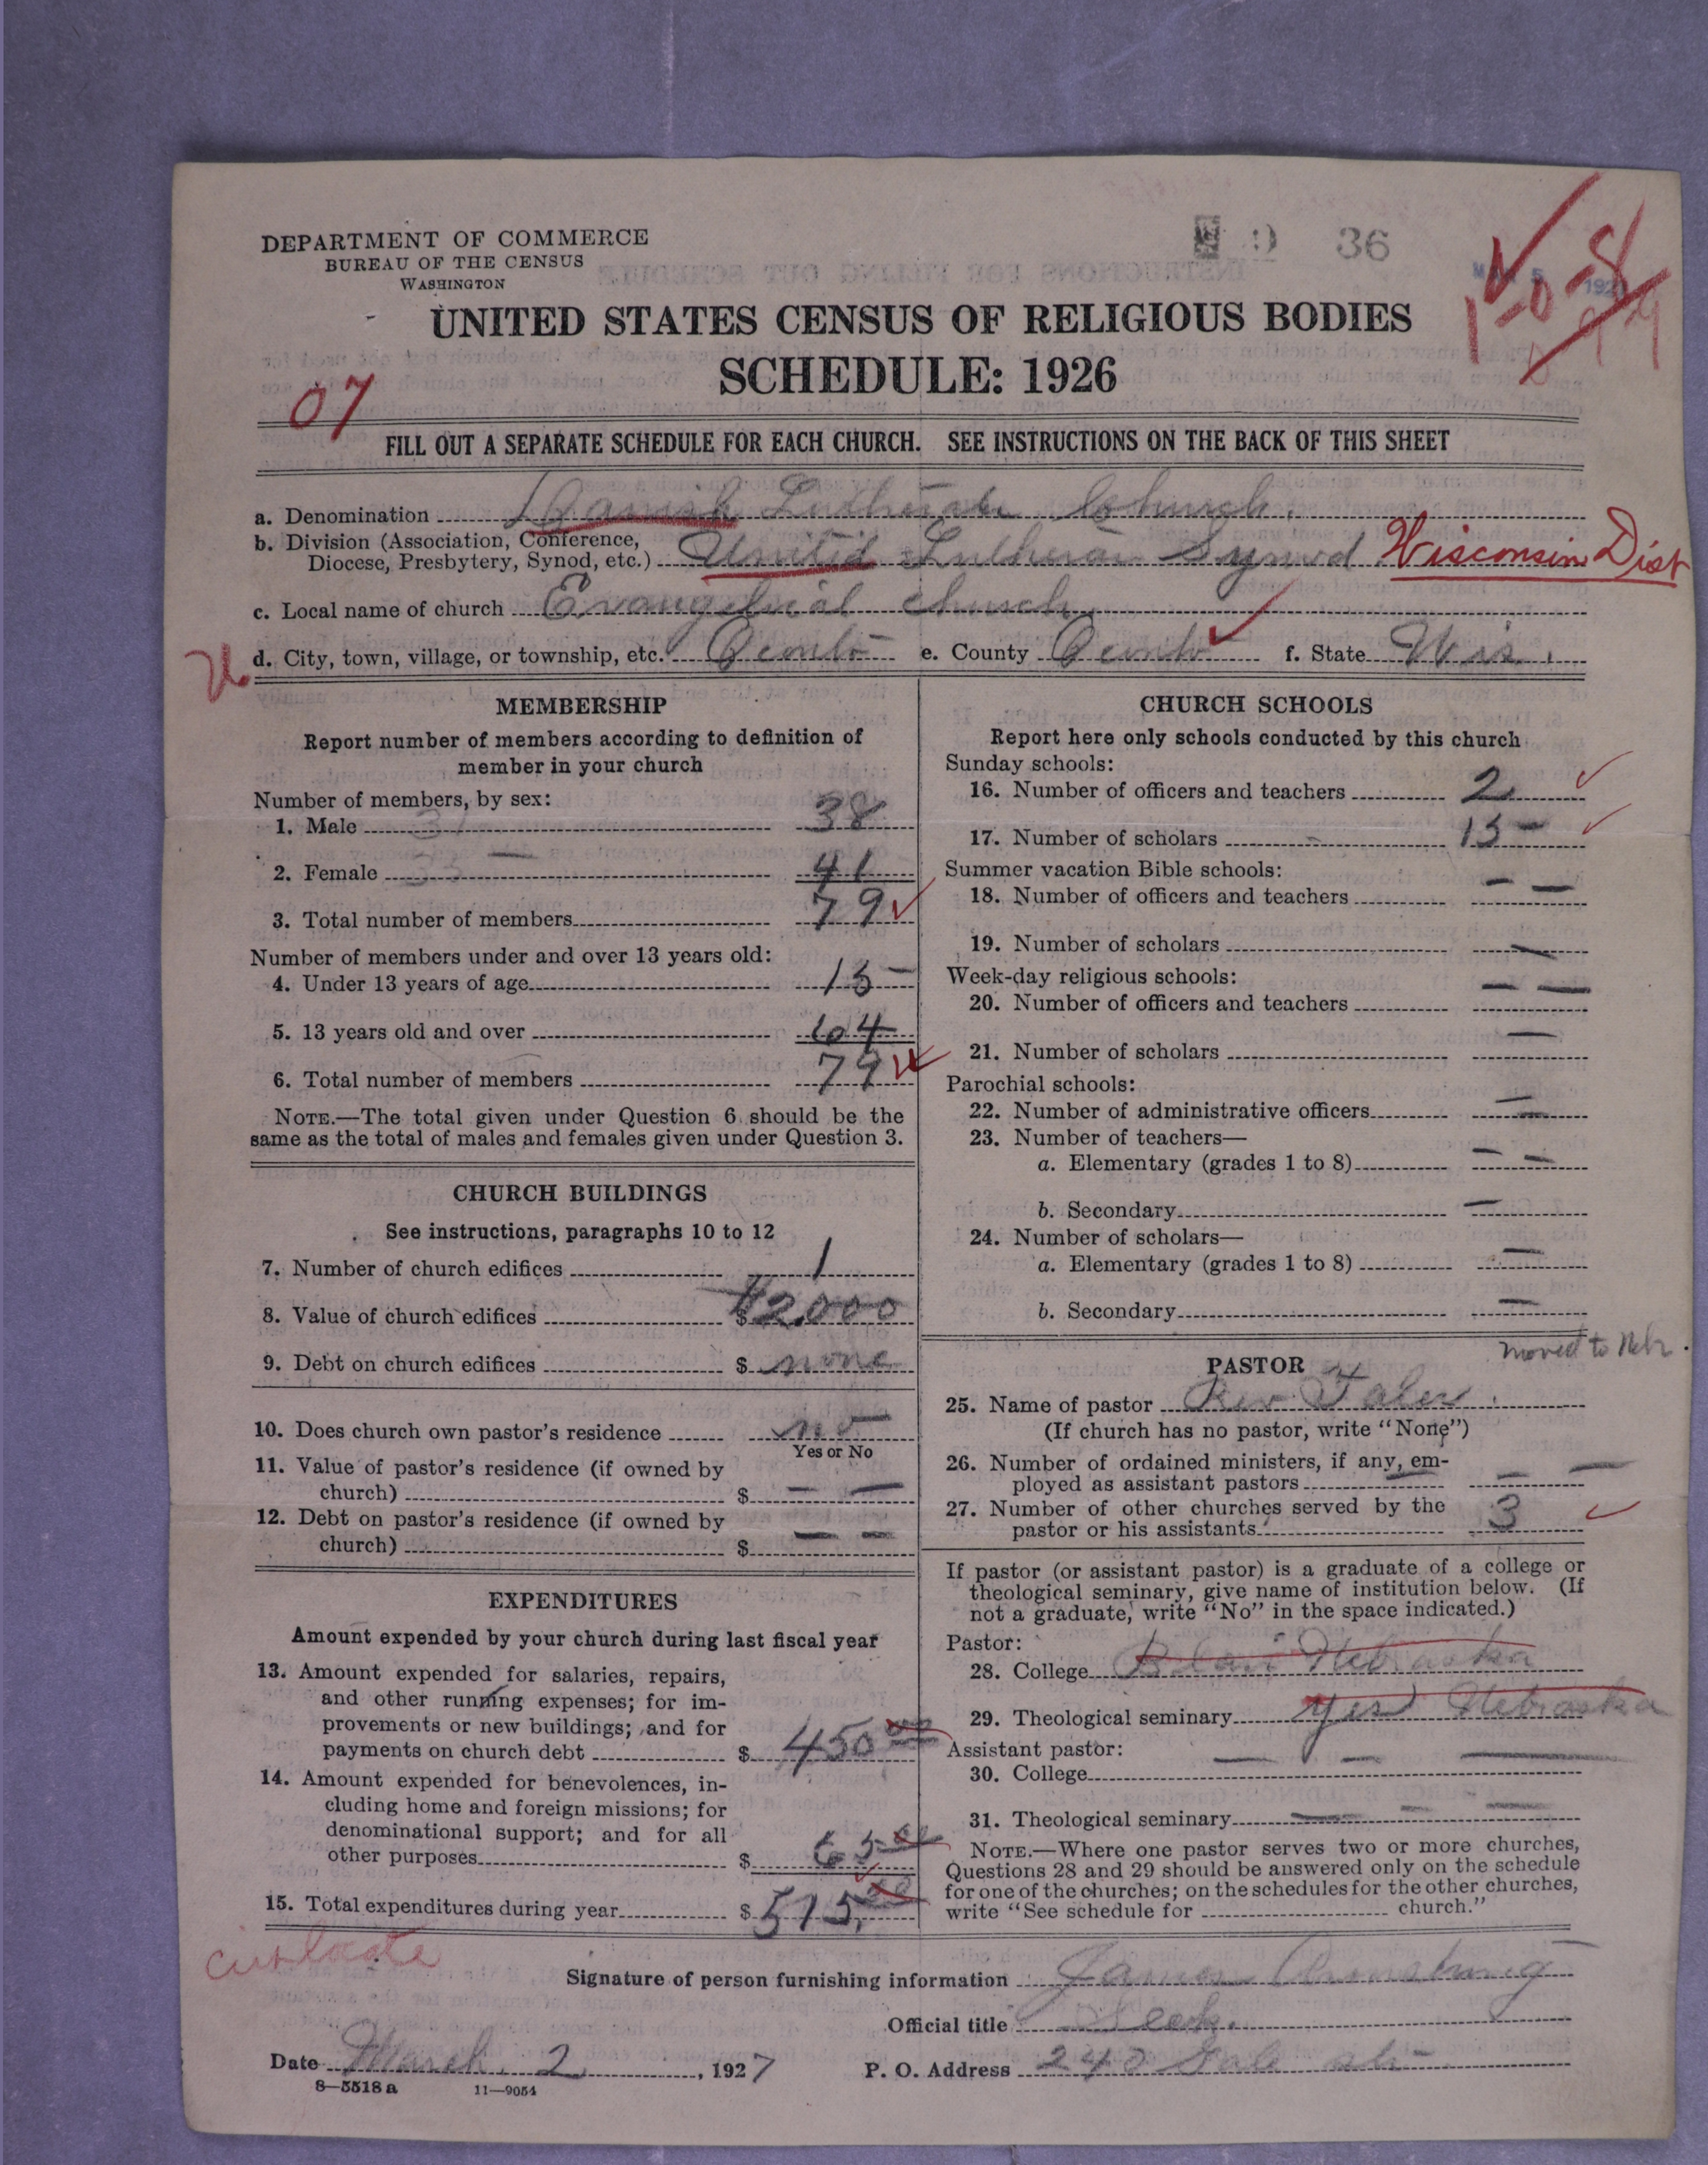 DEPARTMENT OF COMMERCE
BUREAU OF THE CENSUS
WASHINGTON
36
UNITED STATES CENSUS OF RELIGIOUS BODIES
SCHEDULE: 1926
07
FILL OUT A SEPARATE SCHEDULE FOR EACH CHURCH. SEE INSTRUCTIONS ON THE BACK OF THIS SHEET
a. Denomination Danish Lutheran Church.
b. Division (Association, Conference,
Diocese, Presbytery, Synod, etc.) United Lutheran Synod Wisconsin Dist
c. Local name of church Evangelical church
d. City, town, village, or township, etc. Oconto e. County Oconto f. State Wis.
MEMBERSHIP
Report number of members according to definition of
member in your church
Number of members, by sex:
1. Male 38
2. Female 41
3. Total number of members 79
Number of members under and over 13 years old:
4. Under 13 years of age 15
5. 13 years old and over 64
6. Total number of members 79
NOTE.—The total given under Question 6 should be the
same as the total of males and females given under Question 3.
CHURCH BUILDINGS
See instructions, paragraphs 10 to 12
7. Number of church edifices 1
8. Value of church edifices $2,000
9. Debt on church edifices $ none
10. Does church own pastor's residence no
Yes or No
11. Value of pastor's residence (if owned by
church) $ — —
12. Debt on pastor's residence (if owned by
church) $ — —
EXPENDITURES
Amount expended by your church during last fiscal year
13. Amount expended for salaries, repairs,
and other running expenses; for im-
provements or new buildings; and for
payments on church debt $ 450 00
14. Amount expended for benevolences, in-
cluding home and foreign missions; for
denominational support; and for all
other purposes $ 65 00
15. Total expenditures during year $ 515.00
CHURCH SCHOOLS
Report here only schools conducted by this church
Sunday schools:
16. Number of officers and teachers 2
17. Number of scholars 15
Summer vacation Bible schools:
18. Number of officers and teachers — —
19. Number of scholars —
Week-day religious schools:
20. Number of officers and teachers — —
21. Number of scholars —
Parochial schools:
22. Number of administrative officers —
23. Number of teachers—
a. Elementary (grades 1 to 8) — —
b. Secondary —
24. Number of scholars—
a. Elementary (grades 1 to 8) —
b. Secondary —
moved to Nebr.
PASTOR
25. Name of pastor Rev
(If church has no pastor, write "None")
26. Number of ordained ministers, if any, em-
ployed as assistant pastors — —
27. Number of other churches served by the
pastor or his assistants 3
If pastor (or assistant pastor) is a graduate of a college or
theological seminary, give name of institution below. (If
not a graduate, write "No" in the space indicated.)
Pastor:
28. College Blair Nebraska
29. Theological seminary yes Nebraska
Assistant pastor:
30. College — — —
31. Theological seminary — — —
NOTE.—Where one pastor serves two or more churches,
Questions 28 and 29 should be answered only on the schedule
for one of the churches; on the schedules for the other churches,
write "See schedule for church."
Signature of person furnishing information James
Official title
Date March 2, 1927 P. O. Address
8—5518 a 11—9054